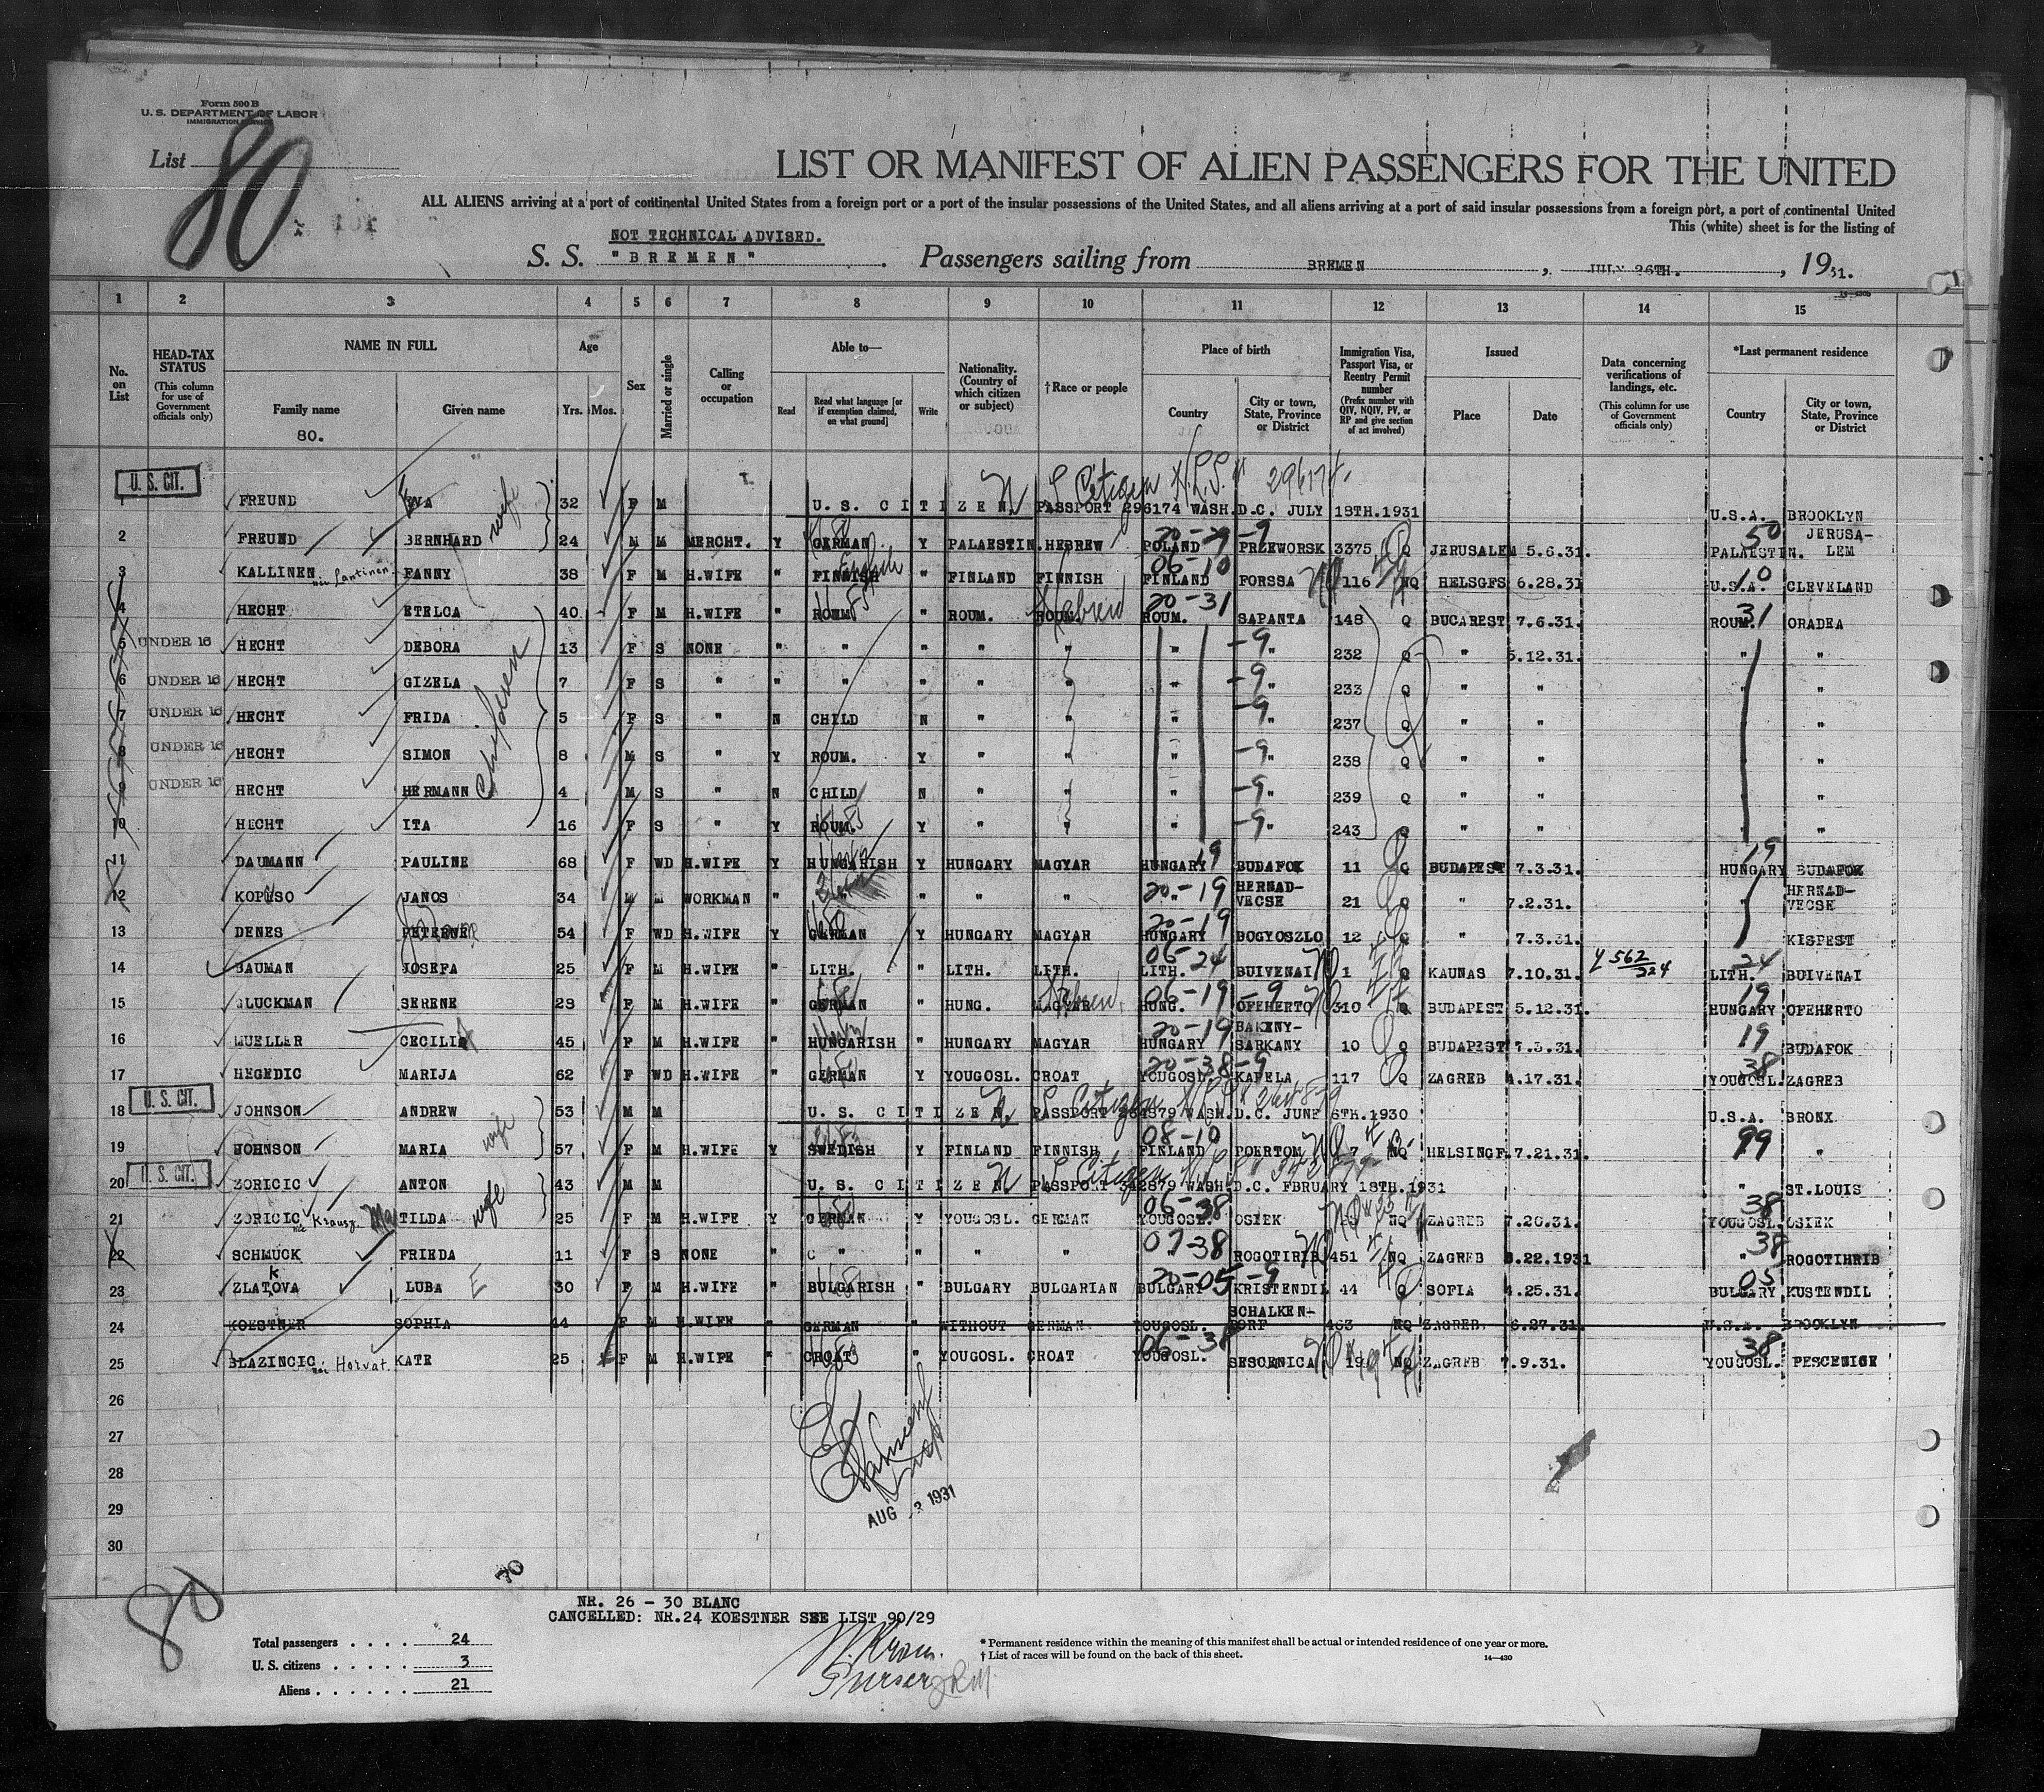 Form 500 B
U. S. DEPARTMENT OF LABOR
IMMIGRATION SERVICE
List 80
LIST OR MANIFEST OF ALIEN PASSENGERS FOR THE UNITED
ALL ALIENS arriving at a port of continental United States from a foreign port or a port of the insular possessions of the United States, and all aliens arriving at a port of said insular possessions from a foreign port, a port of continental United
This (white) sheet is for the listing of
NOT TECHNICAL ADVISED.
S. S. "BREMEN" Passengers sailing from BREMEN, JULY 26TH., 1931.
1 2 3 4 5 6 7 8 9 10 11 12 13 14 15
No. on List
HEAD-TAX STATUS (This column for use of Government officials only)
NAME IN FULL Family name Given name
Age Yrs. Mos.
Sex
Married or single
Calling or occupation
Able to— Read Read what language [or if exemption claimed, on what ground] Write
Nationality. (Country of which citizen or subject)
†Race or people
Place of birth Country City or town, State, Province or District
Immigration Visa, Passport Visa, or Reentry Permit number (Prefix number with QIV, NQIV, PV, or RP and give section of act involved)
Issued Place Date
Data concerning verifications of landings, etc. (This column for use of Government officials only)
*Last permanent residence Country City or town, State, Province or District
80.
U. S. CIT.
1 FREUND EVA wife 32 F M U. S. CITIZEN. PASSPORT 296174 WASH.D.C. JULY 18TH.1931 U.S.A. BROOKLYN
U S Citizen 296174
2 FREUND BERNHARD 24 M M MERCHT. Y GERMAN Y PALAESTIN. HEBREW POLAND 20-29-9 PRZEWORSK 3375 Q JERUSALEM 5.6.31. PALAESTIN. 50 JERUSALEM
3 KALLINEN née Lantinen FANNY 38 F M H.WIFE " FINNISH " FINLAND FINNISH FINLAND 06-10 FORSSA 116 NQ HELSGFS 6.28.31 U.S.A. 10 CLEVELAND
4 HECHT ETELCA 40 F M H.WIFE " ROUM. " ROUM. ROUM. Hebrew ROUM. 20-31 SAPANTA 148 Q BUCAREST 7.6.31. ROUM. 31 ORADEA
5 UNDER 16 HECHT DEBORA 13 F S NONE " " " " " " -9 " 232 Q " 5.12.31. " "
6 UNDER 16 HECHT GIZELA 7 F S " " " " " " " -9 " 233 Q " " " "
7 UNDER 16 HECHT FRIDA 5 F S " N CHILD N " " " -9 " 237 Q " " " "
8 UNDER 16 HECHT SIMON 8 M S " Y ROUM. Y " " " -9 " 238 Q " " " "
9 UNDER 16 HECHT HERMANN 4 M S " N CHILD N " " " -9 " 239 Q " " " "
children
10 HECHT ITA 16 F S " Y ROUM. Y " " " -9 " 243 Q " " " "
11 DAUMANN PAULINE 68 F WD H.WIFE Y HUNGARISH Y HUNGARY MAGYAR HUNGARY 19 BUDAFOK 11 Q BUDAPEST 7.3.31. HUNGARY 19 BUDAFOK
12 JANOS 34 M M WORKMAN " " " " " 20-19 HERNAD-VECSE 21 Q " 7.2.31. HERNAD-VECSE
13 DENES 54 F WD H.WIFE Y GERMAN Y HUNGARY MAGYAR HUNGARY 20-19 BOGYOSZLO 12 Q " 7.3.31. KISPEST
14 BAUMAN JOSEFA 25 F M H.WIFE " LITH. " LITH. LITH. LITH. 06-24 BUIVENAI 1 Q KAUNAS 7.10.31. 4 562/324 LITH. 24 BUIVENAI
15 GLUCKMAN SERENE 28 F M H.WIFE " GERMAN " HUNG. MAGYAR Hebrew HUNG. 06-19-9 OFEHERTO 310 Q BUDAPEST 5.12.31. HUNGARY 19 OFEHERTO
16 MUELLER CECILIA 45 F M H.WIFE " HUNGARISH " HUNGARY MAGYAR HUNGARY 20-19 BAKENY-SARKANY 10 Q BUDAPEST 7.3.31. 19 BUDAFOK
17 HEGEDIC MARIJA 62 F WD H.WIFE " GERMAN Y YOUGOSL. CROAT YOUGOSL. 20-38-9 KAPELA 117 Q ZAGREB 4.17.31. YOUGOSL. 38 ZAGREB
U. S. CIT.
18 JOHNSON ANDREW 53 M M U. S. CITIZEN. PASSPORT 264879 WASH.D.C. JUNE 6TH.1930 U.S.A. BRONX
19 JOHNSON MARIA wife 57 F M H.WIFE Y SWEDISH Y FINLAND FINNISH FINLAND 08-10 POERTOM 7 NQ HELSINGF. 7.21.31. 99 "
U. S. CIT.
20 ZORICIC ANTON 43 M M U. S. CITIZEN. PASSPORT 342879 WASH.D.C. FBRUARY 18TH.1931 " ST.LOUIS
21 ZORICIC née Krausz MATILDA wife 25 F M H.WIFE Y GERMAN Y YOUGOSL. GERMAN YOUGOSL. 06-38 OSIEK NQ ZAGREB 7.20.31. YOUGOSL. 38 OSIEK
22 SCHMUCK FRIEDA 11 F S NONE " " " " " 07-38 ROGOTIRIB 451 NQ ZAGREB 6.22.1931 " 38 ROGOTIHRIB
23 ZLATKOVA LUBA 30 F M H.WIFE " BULGARISH " BULGARY BULGARIAN BULGARY 20-05-9 KRISTENDIL 44 Q SOFIA 4.25.31. BULGARY 05 KUSTENDIL
24 KOESTNER SOPHIA 44 F M H.WIFE " GERMAN " WITHOUT GERMAN YOUGOSL. SCHALKEN-DORF 463 NQ ZAGREB 6.27.31. U.S.A. BROOKLYN
25 BLAZINCIC née Horvat KATE 25 F M H.WIFE " CROAT " YOUGOSL. CROAT YOUGOSL. 06-38 SESCENICA 19 NQ ZAGREB 7.9.31. YOUGOSL. 38 PESCENICE
26
27
28
29
30
AUG 2 1931
80
NR. 26 - 30 BLANC
CANCELLED: NR.24 KOESTNER SEE LIST 90/29
Total passengers . . . . 24
U. S. citizens . . . . . 3
Aliens . . . . . . 21
Purser
* Permanent residence within the meaning of this manifest shall be actual or intended residence of one year or more.
† List of races will be found on the back of this sheet.
14—430